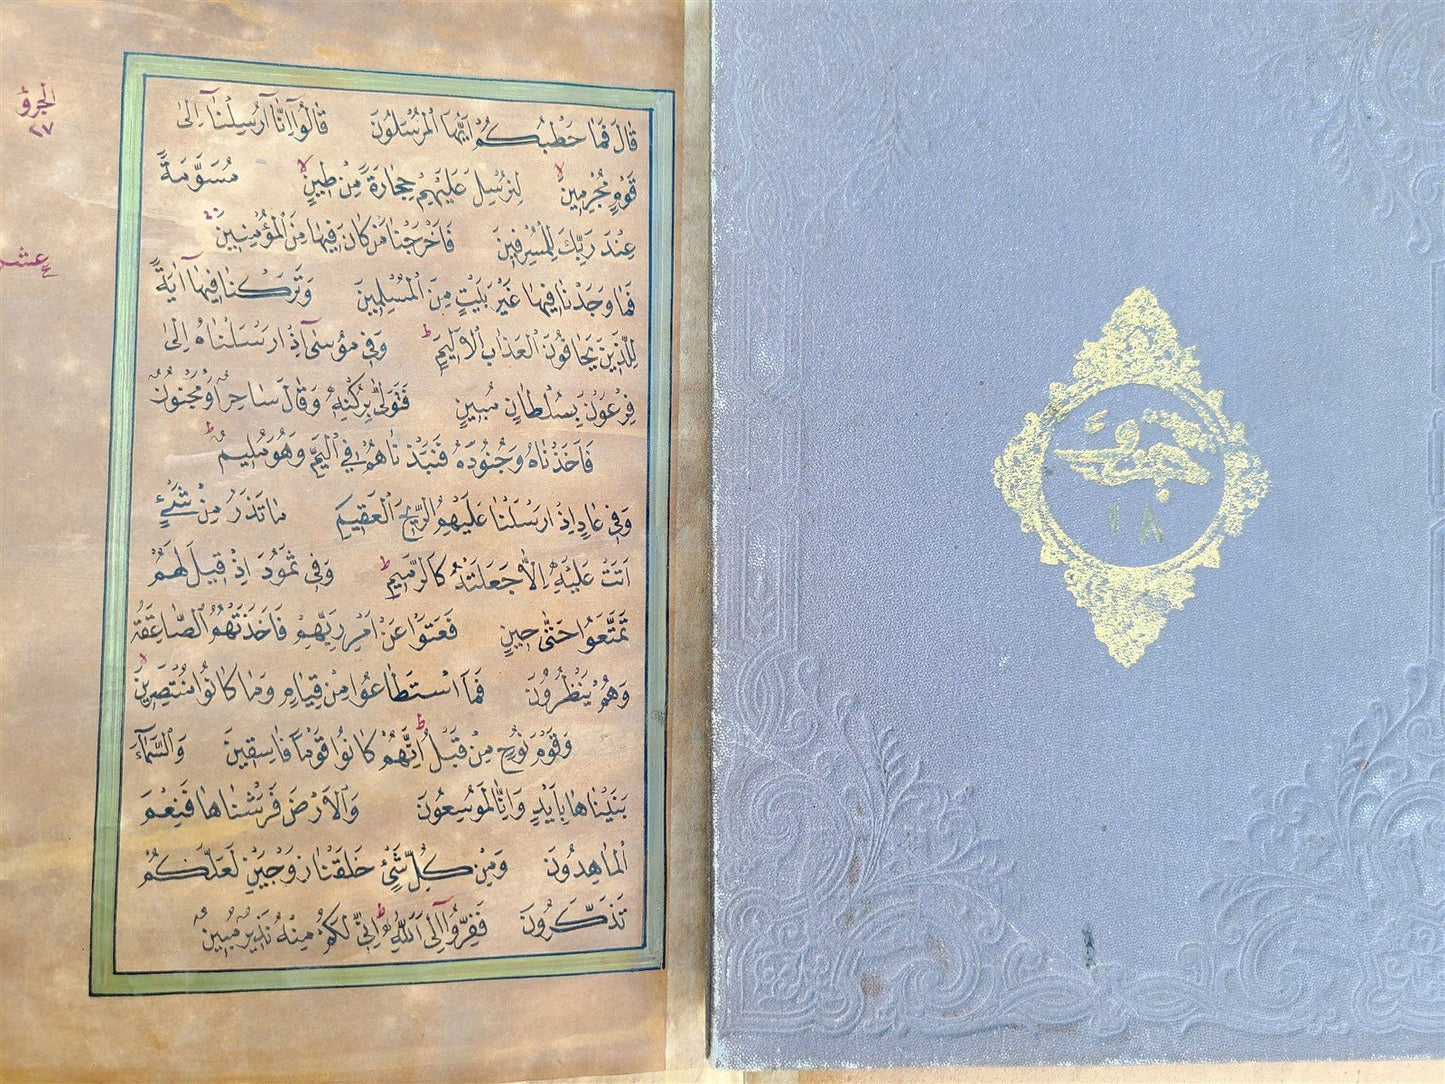 الجزؤ
٢٧
عشر
قَالَ فَمَا خَطْبُكُمْ اَيُّهَا الْمُرْسَلُونَ قَالُوٓا اِنَّٓا اُرْسِلْنَٓا اِلٰى
قَوْمٍ مُجْرِمِينَ لِنُرْسِلَ عَلَيْهِمْ حِجَارَةً مِنْ طِينٍ مُسَوَّمَةً
عِنْدَ رَبِّكَ لِلْمُسْرِفِينَ فَاَخْرَجْنَا مَنْ كَانَ فِيهَا مِنَ الْمُؤْمِنِينَ
فَمَا وَجَدْنَا فِيهَا غَيْرَ بَيْتٍ مِنَ الْمُسْلِمِينَ وَتَرَكْنَا فِيهَٓا اٰيَةً
لِلَّذِينَ يَخَافُونَ الْعَذَابَ الْاَلِيمَ وَفِى مُوسٰٓى اِذْ اَرْسَلْنَاهُ اِلٰى
فِرْعَوْنَ بِسُلْطَانٍ مُبِينٍ فَتَوَلّٰى بِرُكْنِهِ وَقَالَ سَاحِرٌ اَوْ مَجْنُونٌ
فَاَخَذْنَاهُ وَجُنُودَهُ فَنَبَذْنَاهُمْ فِى الْيَمِّ وَهُوَ مُلِيمٌ
وَفِى عَادٍ اِذْ اَرْسَلْنَا عَلَيْهِمُ الرِّيحَ الْعَقِيمَ مَا تَذَرُ مِنْ شَىْءٍ
اَتَتْ عَلَيْهِ اِلَّا جَعَلَتْهُ كَالرَّمِيمِ وَفِى ثَمُودَ اِذْ قِيلَ لَهُمْ
تَمَتَّعُوا حَتّٰى حِينٍ فَعَتَوْا عَنْ اَمْرِ رَبِّهِمْ فَاَخَذَتْهُمُ الصَّاعِقَةُ
وَهُمْ يَنْظُرُونَ فَمَا اسْتَطَاعُوا مِنْ قِيَامٍ وَمَا كَانُوا مُنْتَصِرِينَ
وَقَوْمَ نُوحٍ مِنْ قَبْلُ اِنَّهُمْ كَانُوا قَوْمًا فَاسِقِينَ وَالسَّمَٓاءَ
بَنَيْنَاهَا بِاَيْدٍ وَاِنَّا لَمُوسِعُونَ وَالْاَرْضَ فَرَشْنَاهَا فَنِعْمَ
الْمَاهِدُونَ وَمِنْ كُلِّ شَىْءٍ خَلَقْنَا زَوْجَيْنِ لَعَلَّكُمْ
تَذَكَّرُونَ فَفِرُّٓوا اِلَى اللّٰهِ اِنِّى لَكُمْ مِنْهُ نَذِيرٌ مُبِينٌ
١٨